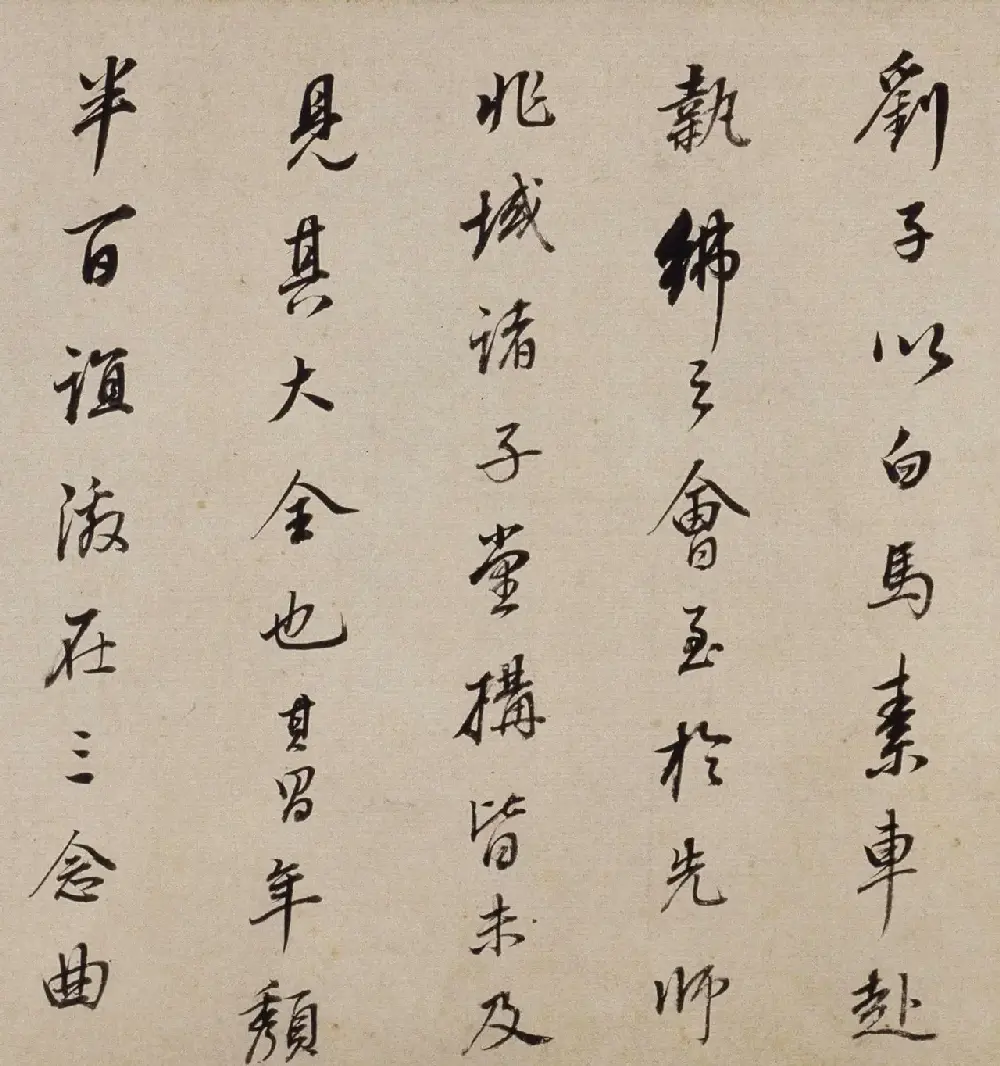 劉子以白馬素車赴
執紼之會至於先師
兆域諸子堂搆皆未及
見其大全也其昌年頽
半百誼激在三念曲